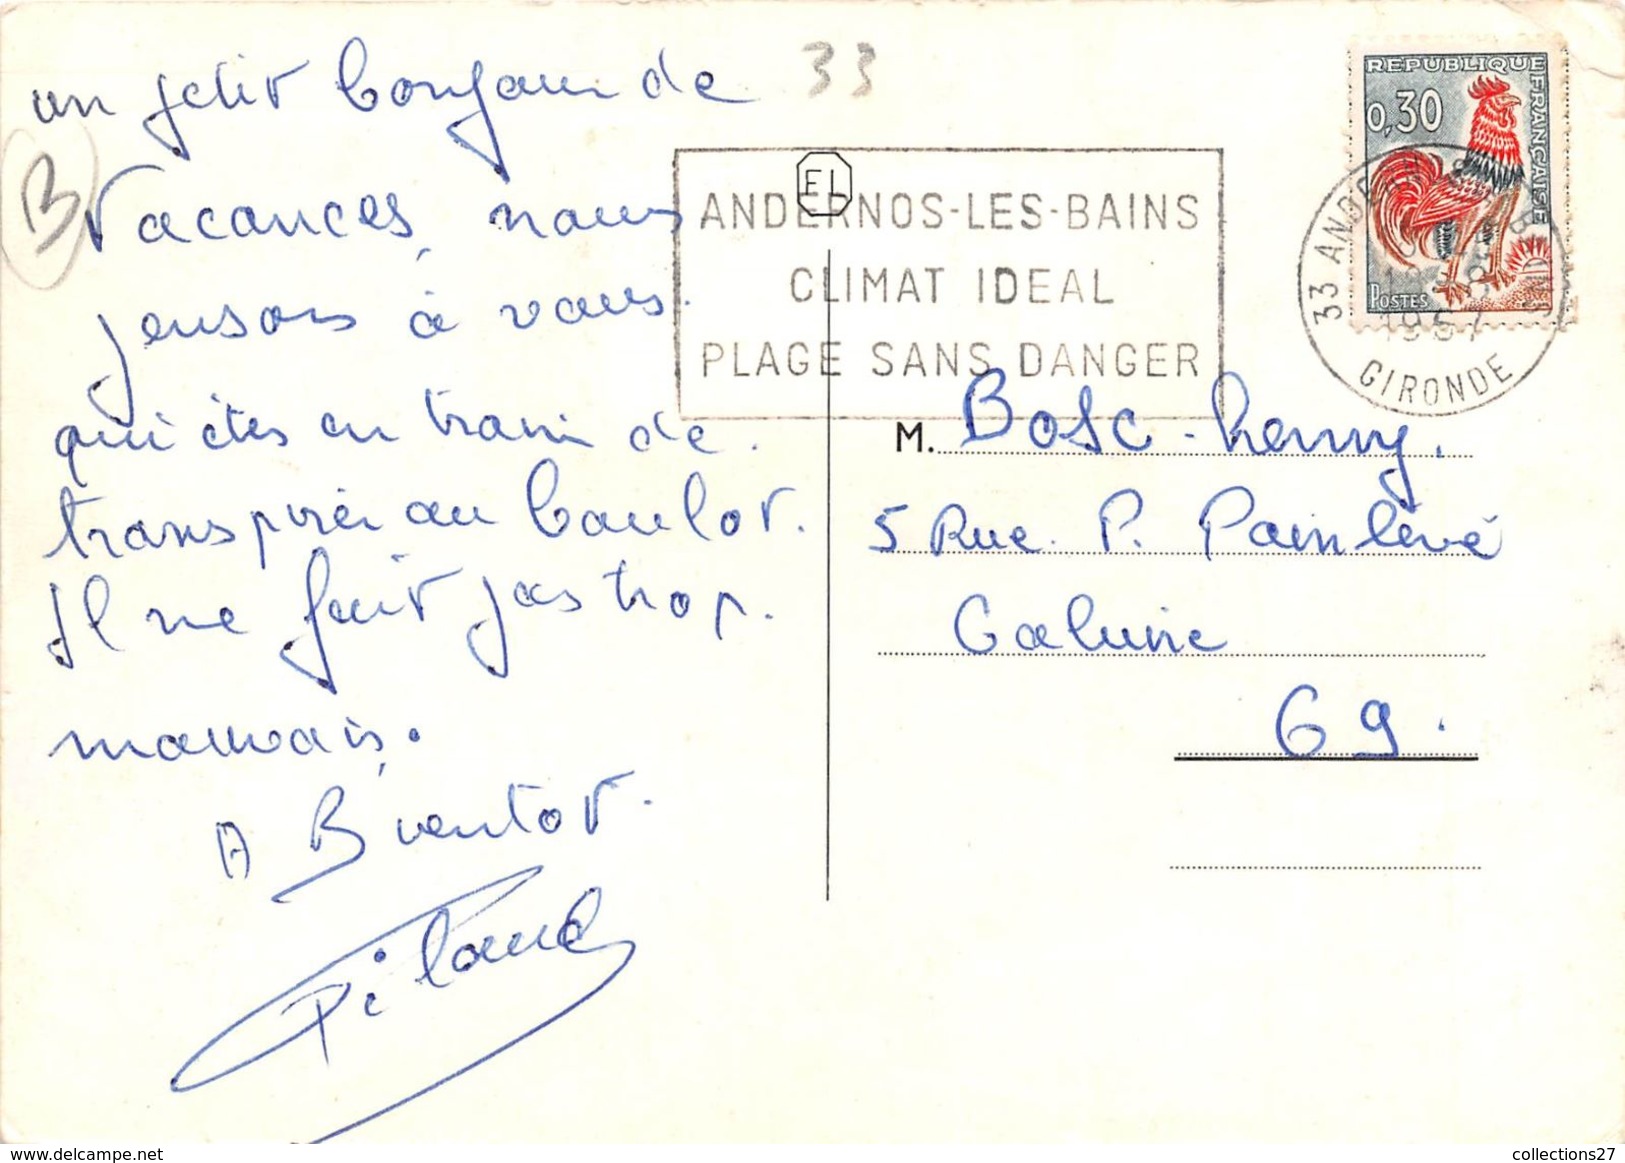 un petit bonjour de
vacances, nous
pensons à vous.
qui êtes en train de
transpirer au boulot.
Il ne fait pas trop
mauvais.
A Bientot.
33
B
EL
ANDERNOS-LES-BAINS
CLIMAT IDEAL
PLAGE SANS DANGER
REPUBLIQUE FRANÇAISE
0,30
POSTES
33 ANDERNOS-LES-BAINS
GIRONDE
M. Bosc-henry.
5 Rue P. Painlevé
Caluire
69.
delcampe.net
collections27